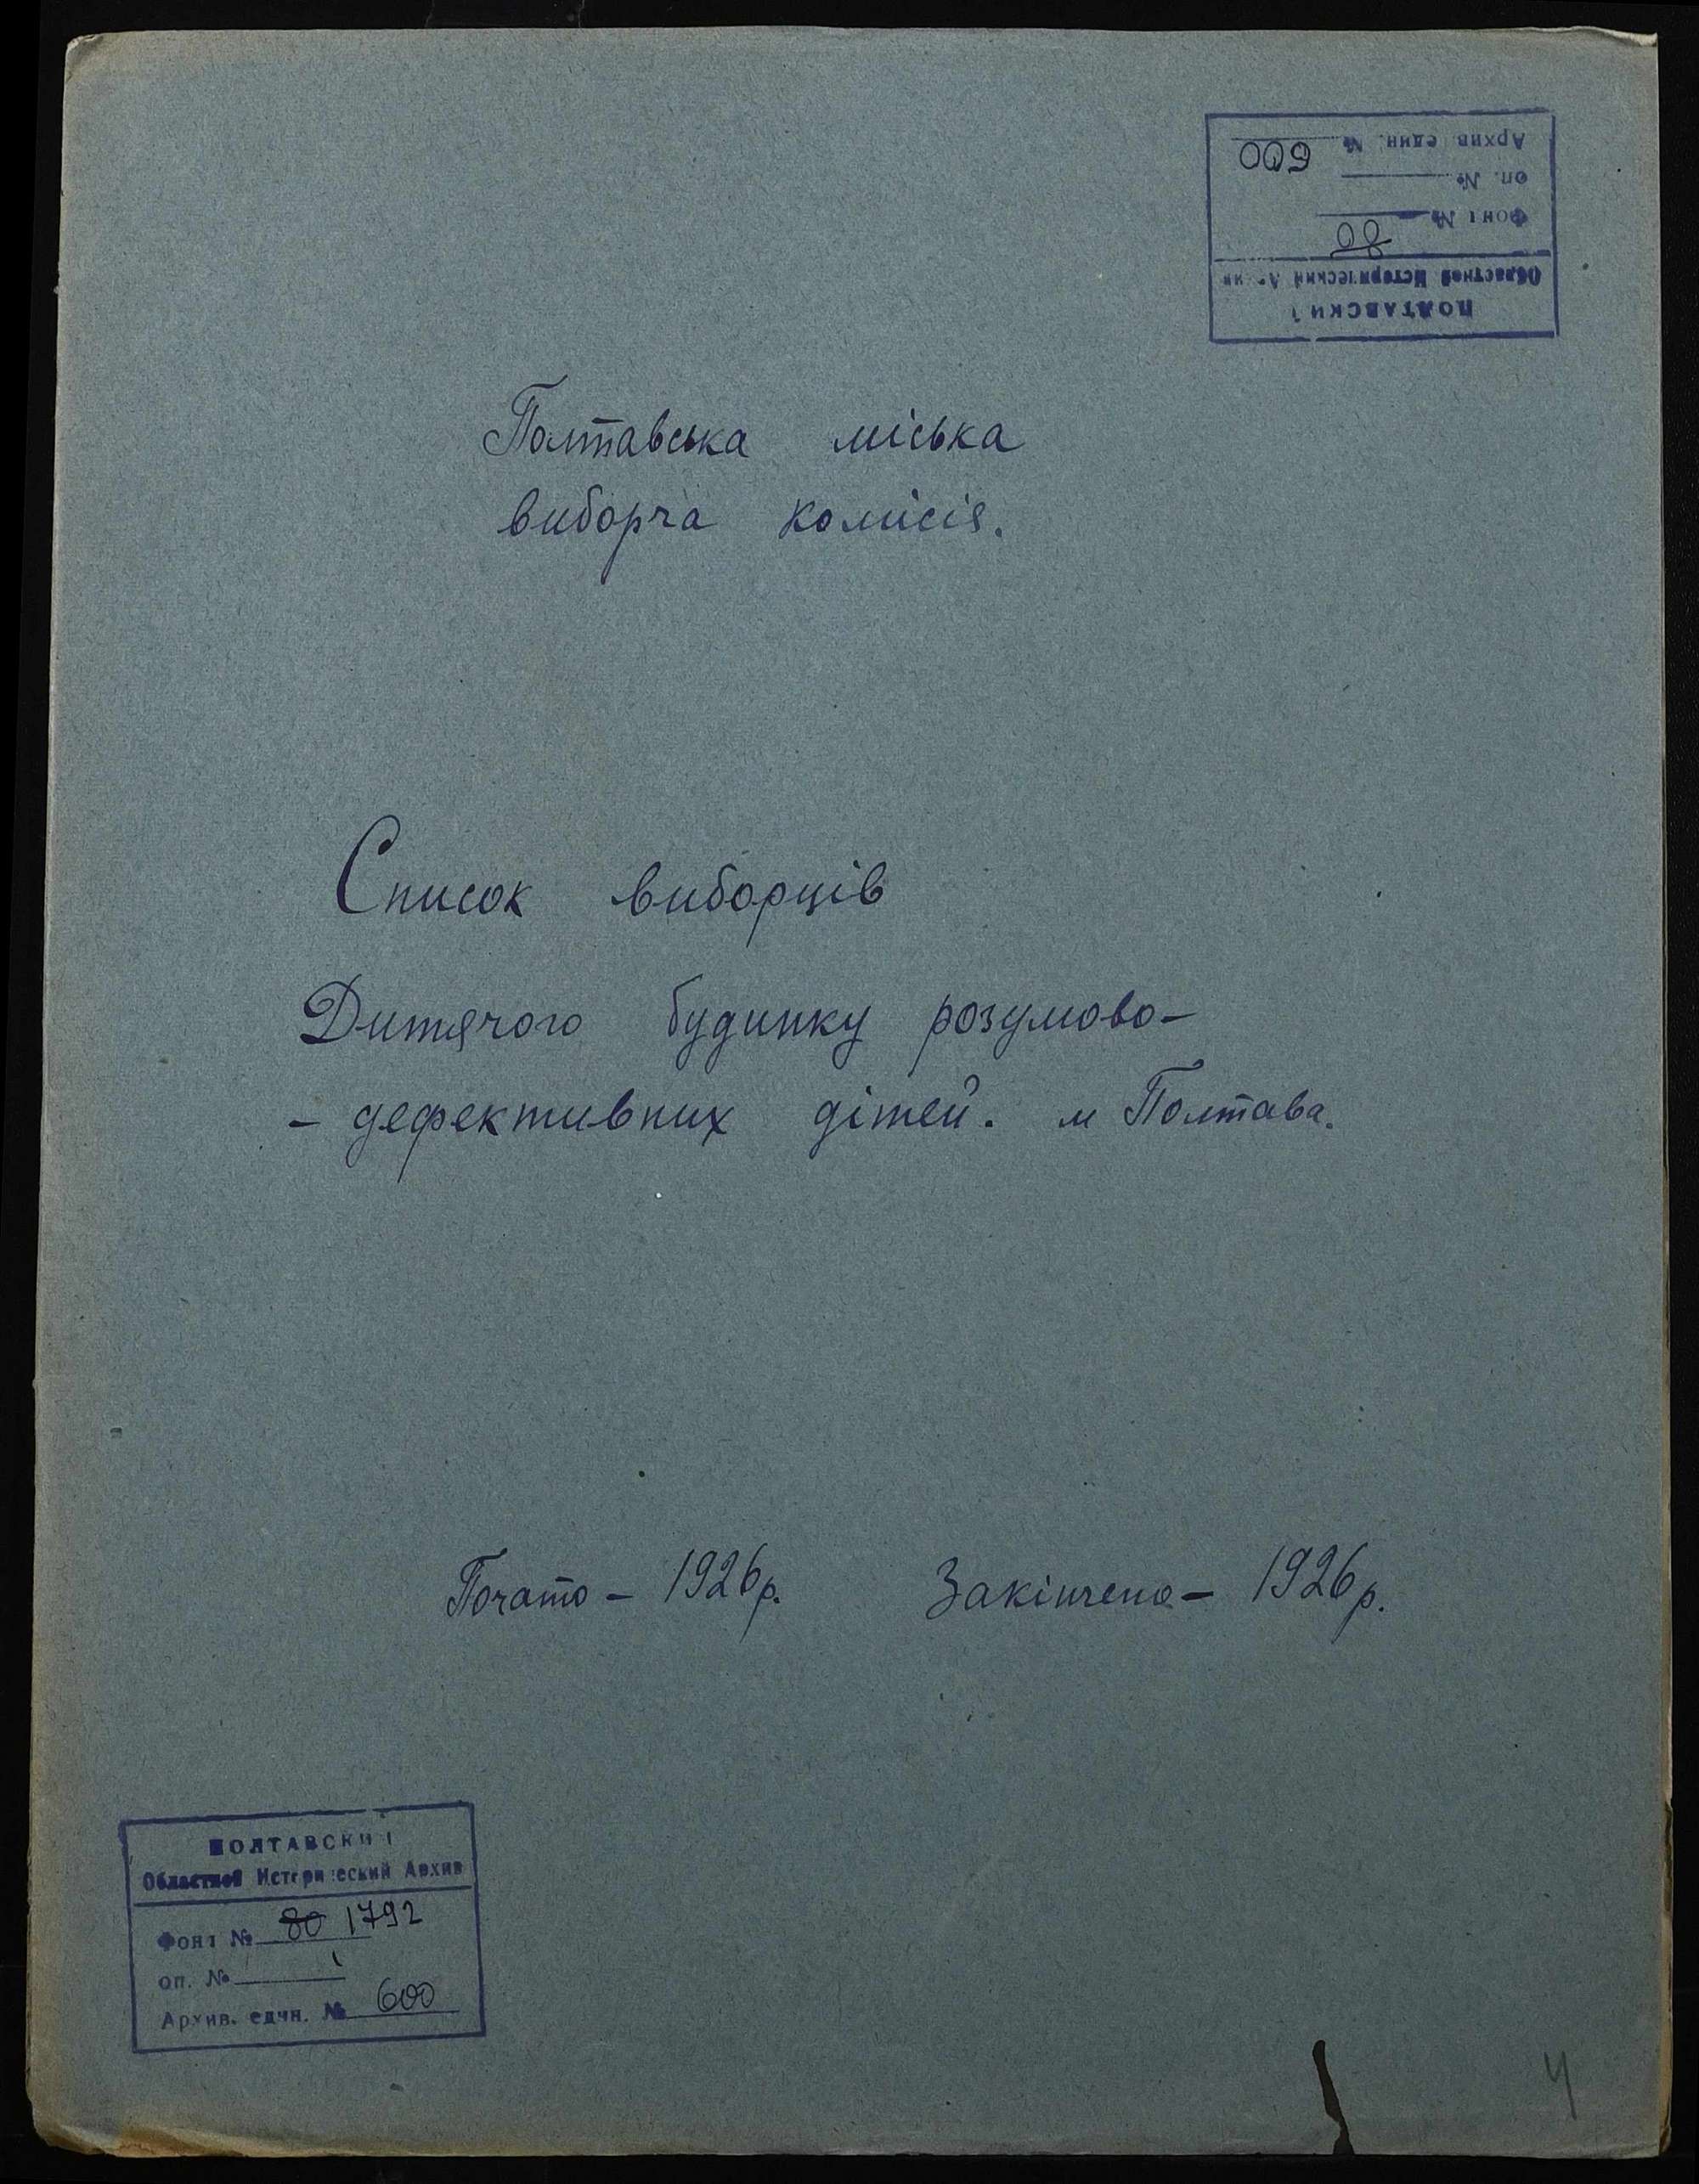 ПОЛТАВСКИЙ
Областной Исторический Архив
Фонд № 80
оп. №
Архив. един. № 600
Полтавська міська
виборча комісія.
Список виборців
Дитячого будинку розумово-
- дефективних дітей. м Полтава.
Почато - 1926р. Закінчено - 1926р.
ПОЛТАВСКИЙ
Областной Исторический Архив
Фонд № 80 1792
оп. № 1
Архив. един. № 600
4